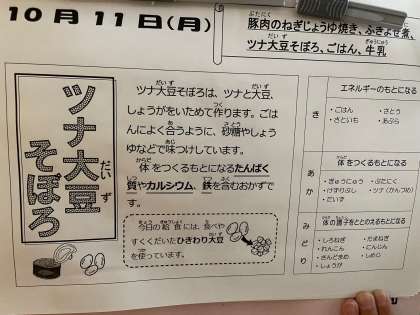 10月11日(月)
豚肉のねぎじょうゆ焼き、ふきよせ煮、
ツナ大豆そぼろ、ごはん、牛乳
ツナ大豆そぼろ
ツナ大豆そぼろは、ツナと大豆、
しょうがをいためて作ります。ごは
んによく合うように、砂糖やしょう
ゆなどで味つけしています。
体をつくるもとになるたんぱく
質やカルシウム、鉄を含むおかずで
す。
今日の給食には、食べや
すくくだいたひきわり大豆
を使っています。
エネルギーのもとになる
き
・ごはん ・さとう
・さといも ・あぶら
体をつくるもとになる
あか
・ぎゅうにゅう ・ぶたにく
・けずりぶし ・ツナ(かんづめ)
・だいず
体の調子をととのえるもとになる
みどり
・しろねぎ ・たまねぎ
・れんこん ・にんじん
・さんどまめ ・しめじ
・しょうが